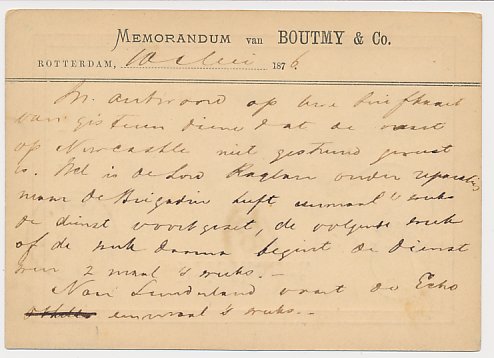 MEMORANDUM van BOUTMY & Co.
ROTTERDAM, 10 Mei 1876.
In antwoord op uwe briefkaart
van gisteren diene dat de vaart
op Newcastle niet gestremd geweest
is. Wel is de Lord Raglan onder reparatie
maar de Brigadier heeft eenmaal 's weeks
de dienst voortgezet, de volgende week
of de week daarna begint de dienst
weer 2 maal 's weeks. -
Naar Sunderland vaart de Echo
eenmaal 's weeks. -